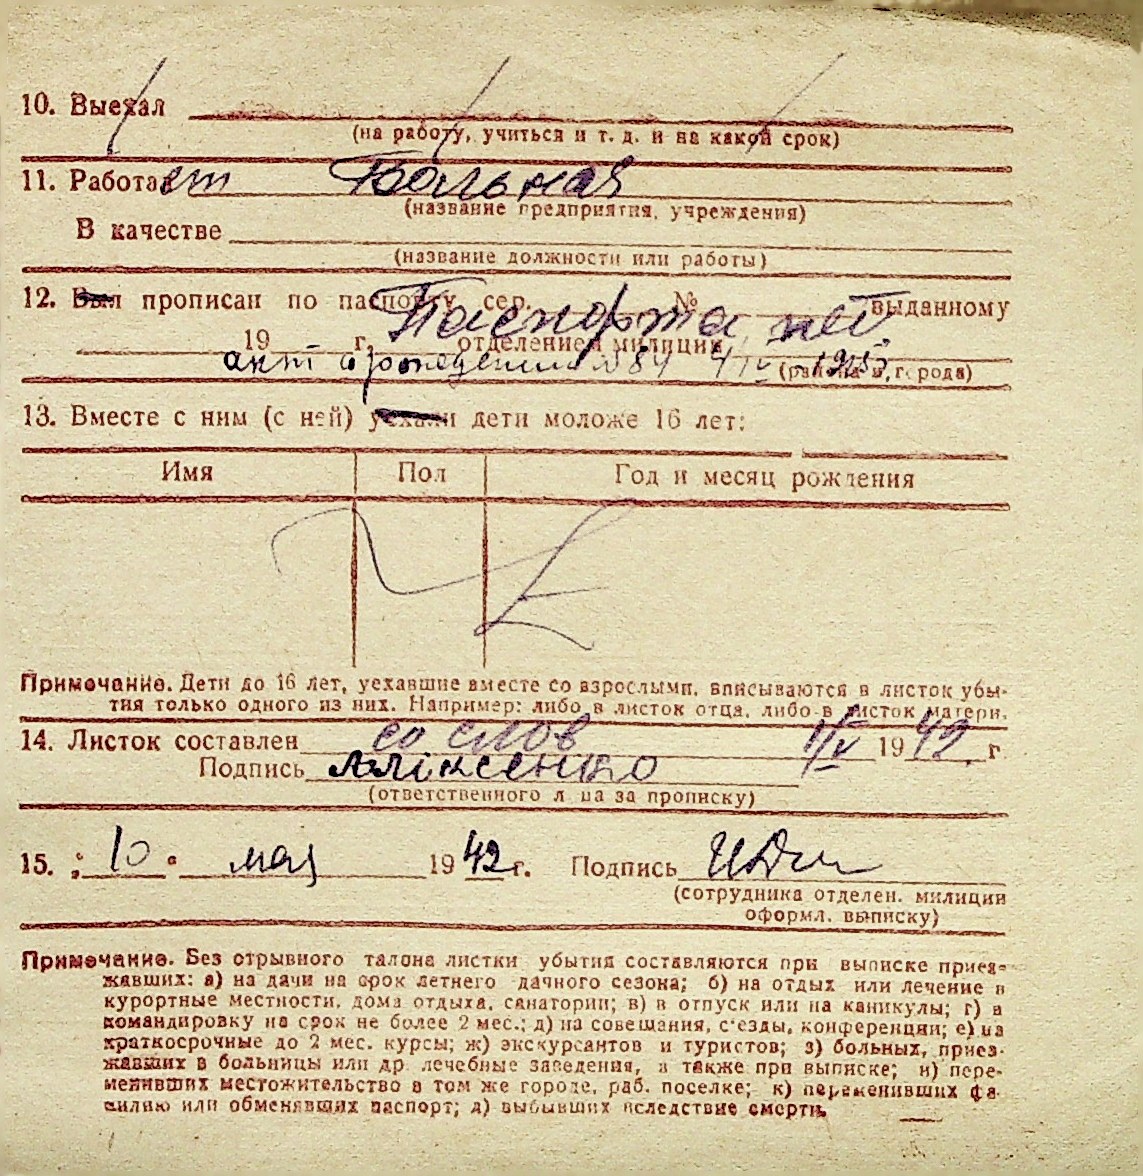 10. Выехал
(на работу, учиться и т. д. и на какой срок)
11. Работает Больная
(название предприятия, учреждения)
В качестве
(название должности или работы)
12. Был прописан по паспорту сер. № выданному
Паспорта нет
19 г. отделением милиции
акт о рождении № 84 4/IV 1925
(района и города)
13. Вместе с ним (с ней) уехали дети моложе 16 лет:
Имя Пол Год и месяц рождения
Примечание. Дети до 16 лет, уехавшие вместе со взрослыми, вписываются в листок убы-
тия только одного из них. Например: либо в листок отца, либо в листок матери.
14. Листок составлен со слов 1/IV 1942 г
Подпись
(ответственного лица за прописку)
15. „10“ мая 1942 г. Подпись
(сотрудника отделен. милиции
оформл. выписку)
Примечание. Без отрывного талона листки убытия составляются при выписке приез-
жавших: а) на дачи на срок летнего дачного сезона; б) на отдых или лечение в
курортные местности, дома отдыха, санатории; в) в отпуск или на каникулы; г) в
командировку на срок не более 2 мес.; д) на совещания, с'езды, конференции; е) на
краткосрочные до 2 мес. курсы; ж) экскурсантов и туристов; з) больных, приез-
жавших в больницы или др. лечебные заведения, а также при выписке; и) пере-
менивших местожительство в том же городе, раб. поселке; к) переменивших фа-
милию или обменявших паспорт; л) выбывших вследствие смерти.